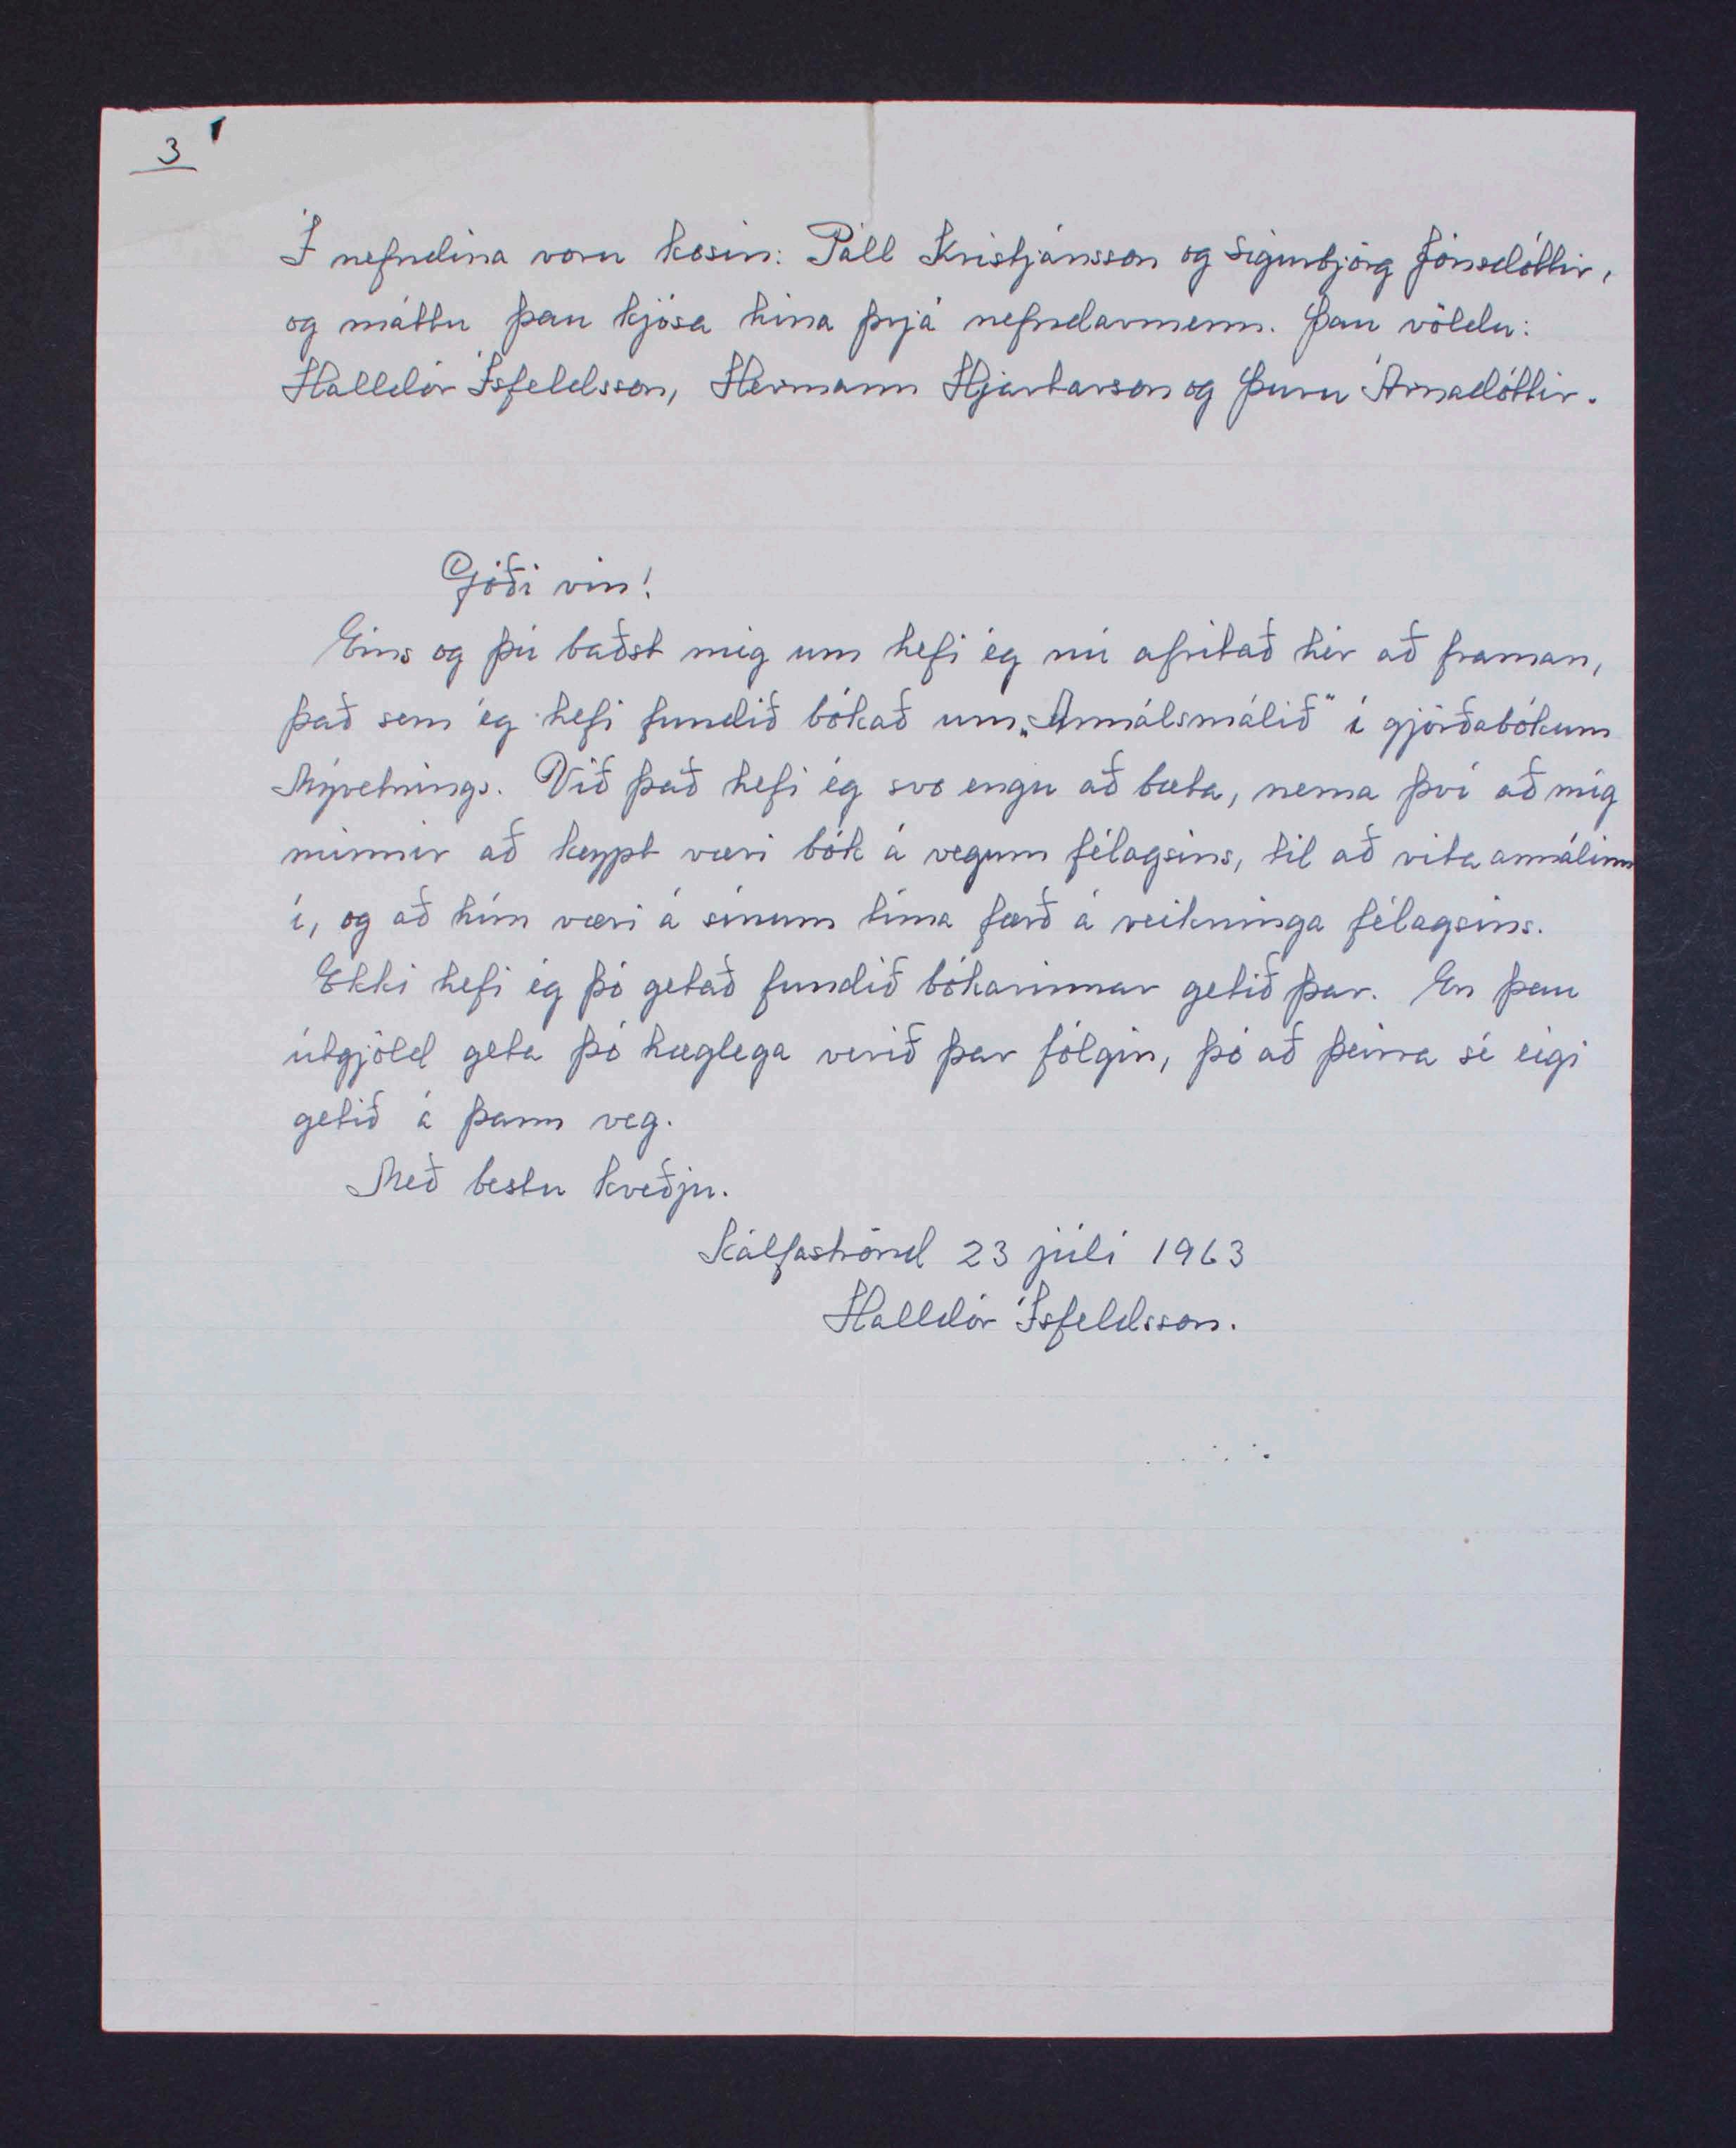 3
Í nefndina voru kosin: Páll Kristjánsson og Sigurbjörg Jónsdóttir,
og máttu þau kjósa hina þrjá nefndarmenn. Þau völdu:
Halldór Ísfeldsson, Hermann Hjartarson og Þuru Árnadóttir.
Góði vin!
Eins og þú baðst mig um hefi ég nú afritað hér að framan,
það sem ég hefi fundið bókað um „Annálsmálið" í gjörðabókum
Mývetnings. Við það hefi ég svo engu að bæta, nema því að mig
minnir að keypt væri bók á vegum félagsins, til að rita annálinn
í, og að hún væri á sínum tíma færð á reikninga félagsins.
Ekki hefi ég þó getað fundið bókarinnar getið þar. En þau
útgjöld geta þó hæglega verið þar fólgin, þó að þeirra sé eigi
getið á þann veg.
Með bestu kveðju.
Kálfaströnd 23 júlí 1963
Halldór Ísfeldsson.